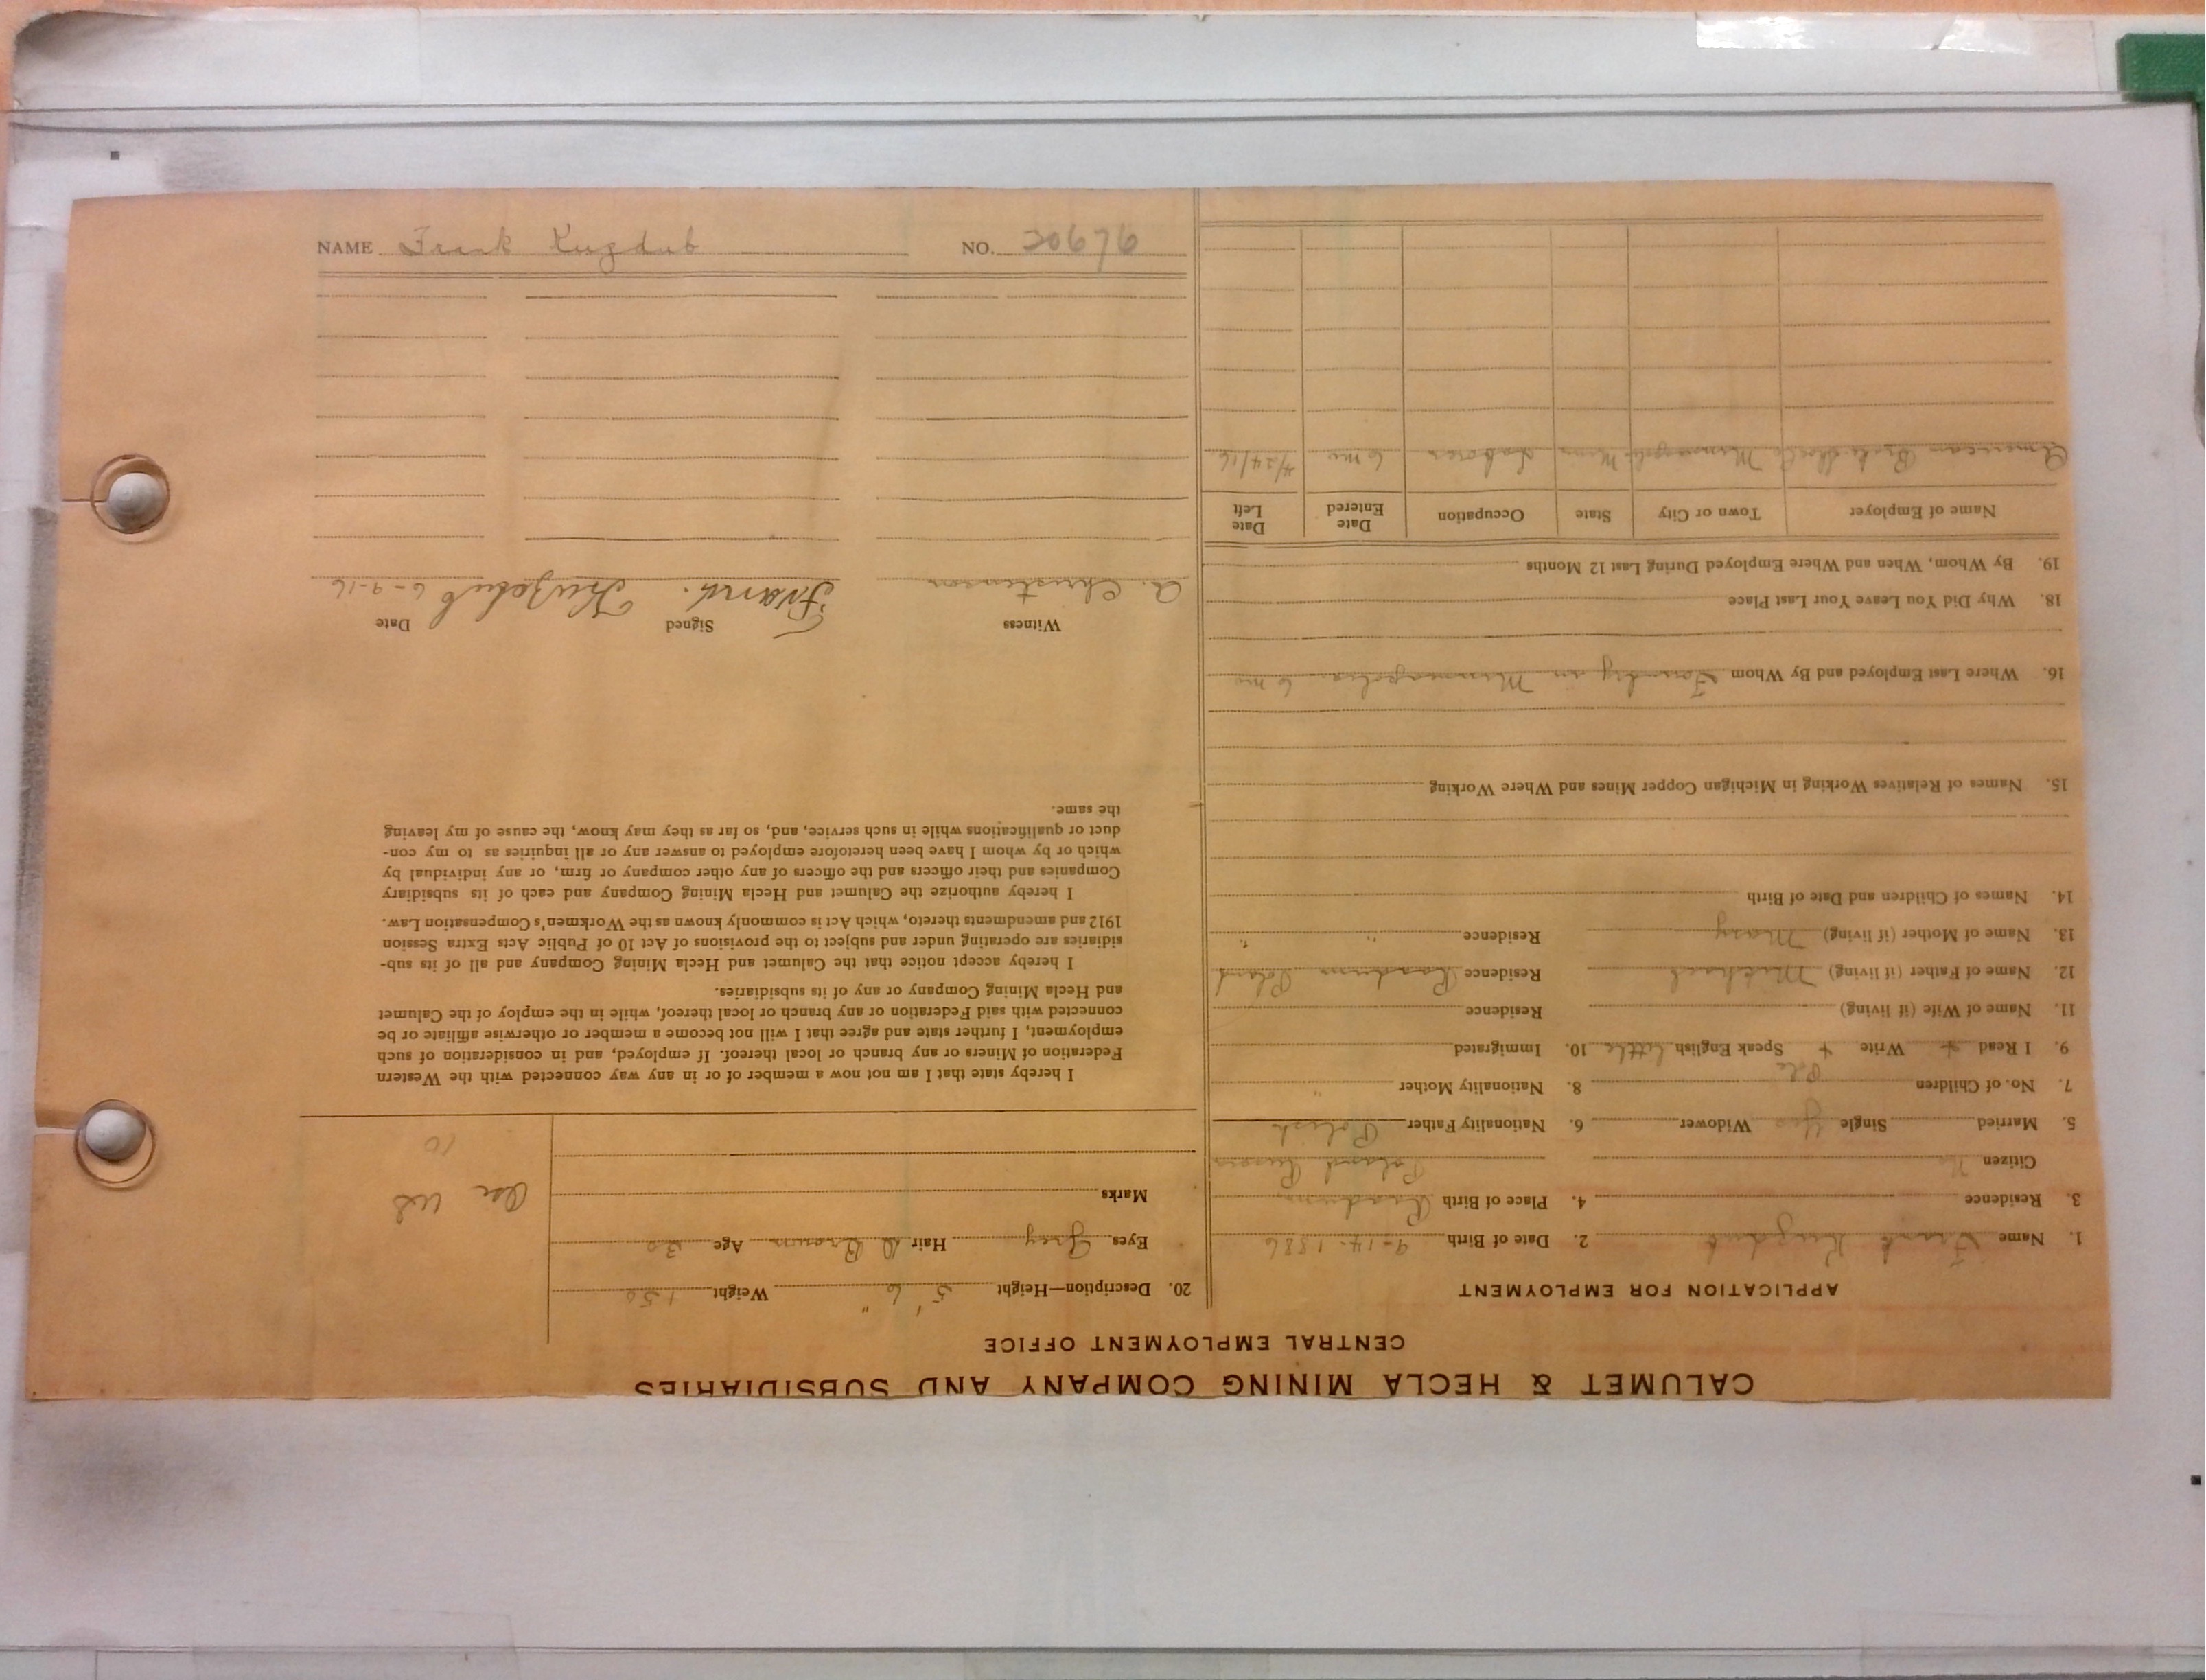 CALUMET & HECLA MINING COMPANY AND SUBSIDIARIES
CENTRAL EMPLOYMENT OFFICE
APPLICATION FOR EMPLOYMENT
1. Name Frank Kuzdub 2. Date of Birth 9-14-1886
3. Residence 4. Place of Birth
Citizen No Poland Russia
5. Married Single Yes Widower 6. Nationality Father Polish
7. No. of Children 8. Nationality Mother "
Pole
9. I Read + Write + Speak English little 10. Immigrated
11. Name of Wife (if living) Residence
12. Name of Father (if living) Michael Residence Poland
13. Name of Mother (if living) Mary Residence " "
14. Names of Children and Date of Birth
15. Names of Relatives Working in Michigan Copper Mines and Where Working
16. Where Last Employed and By Whom Foundry in Minneapolis 6 mo
18. Why Did You Leave Your Last Place
19. By Whom, When and Where Employed During Last 12 Months
Name of Employer Town or City State Occupation Date Entered Date Left
American Minneapolis Minn Laborer 6 mo 4/24/16
20. Description—Height 5' 6" Weight 150
Eyes Grey Hair D Brown Age 30
Marks
10
I hereby state that I am not now a member of or in any way connected with the Western
Federation of Miners or any branch or local thereof. If employed, and in consideration of such
employment, I further state and agree that I will not become a member or otherwise affiliate or be
connected with said Federation or any branch or local thereof, while in the employ of the Calumet
and Hecla Mining Company or any of its subsidiaries.
I hereby accept notice that the Calumet and Hecla Mining Company and all of its sub-
sidiaries are operating under and subject to the provisions of Act 10 of Public Acts Extra Session
1912 and amendments thereto, which Act is commonly known as the Workmen's Compensation Law.
I hereby authorize the Calumet and Hecla Mining Company and each of its subsidiary
Companies and their officers and the officers of any other company or firm, or any individual by
which or by whom I have been heretofore employed to answer any or all inquiries as to my con-
duct or qualifications while in such service, and, so far as they may know, the cause of my leaving
the same.
Witness Signed Date
A. Christenson Frank. Kuzdub 6-9-16
NAME Frank Kuzdub NO. 20676